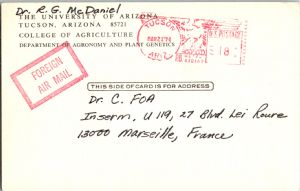 Dr. R. G. McDaniel
THE UNIVERSITY OF ARIZONA
TUCSON, ARIZONA 85721
COLLEGE OF AGRICULTURE
DEPARTMENT OF AGRONOMY AND PLANT GENETICS
TUCSON
ARIZ
U.S. POSTAGE
.18
FOREIGN
AIR MAIL
THIS SIDE OF CARD IS FOR ADDRESS
Dr. C. FOA
Inserm. U 119, 27 Blvd. Lei Roure
13000 Marseille, France